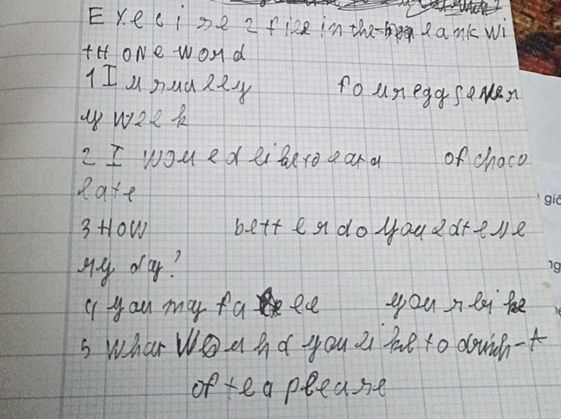 Exercise 2 fill in the blank wi
th one word
1 I usually four eggs ever
y week
2 I would like to eat a of choco
late
3 How better do you eat eve
ry day?
4 you my fa ee you like
5 What would you like to drink - t
of tea please